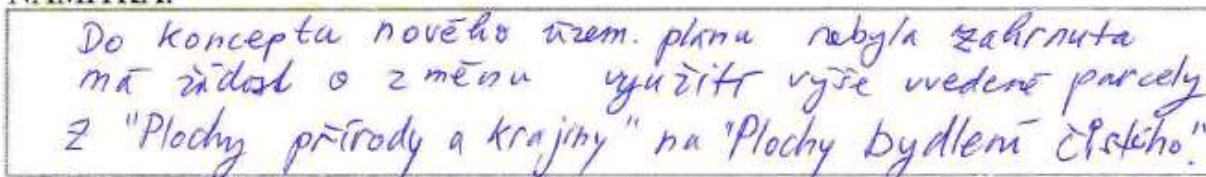 NÁMITKA:
Do konceptu nového územ. plánu nebyla zahrnuta
má žádost o změnu využití výše uvedené parcely
z "Plochy přírody a krajiny" na "Plochy bydlení čistého."